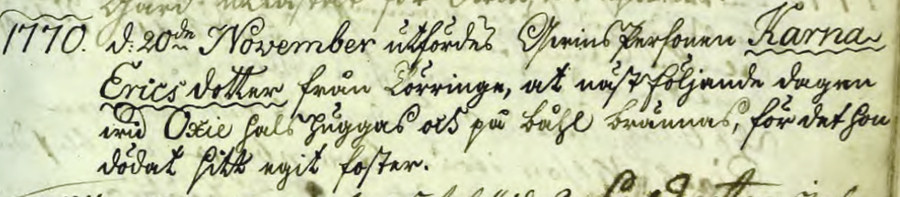 1770. d: 20de November utfördes Qvins Personen Karna
Erics dotter från Börringe, at näst följande dagen
wid Oxie hals huggas och på båhl brännas, för det hon
dödat sitt egit foster.